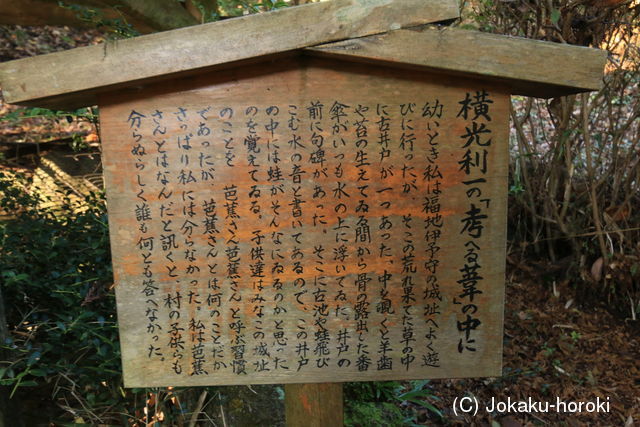 横光利一の「考へる葦」の中に
幼いとき私は福地伊予守の城址へよく遊
びに行ったが、そこの荒れ果てた草の中
に古井戸が一つあった。中を覗くと羊歯
や苔の生えてゐる間から骨の露出した番
傘がいつも水の上に浮いてゐた。井戸の
前に句碑があった。そこに古池や蛙飛び
こむ水の音と書いてあるので、この井戸
の中には蛙がそんなにゐるのかと思った
のを覚えてゐる。子供達はみなこの城址
のことを、芭蕉さん芭蕉さんと呼ぶ習慣
であったが、芭蕉さんとは何のことだか
さっぱり私には分らなかった。私は芭蕉
さんとはなんだと訊くと、村の子供らも
分らぬらしく誰も何とも答へなかった。
(C) Jokaku-horoki